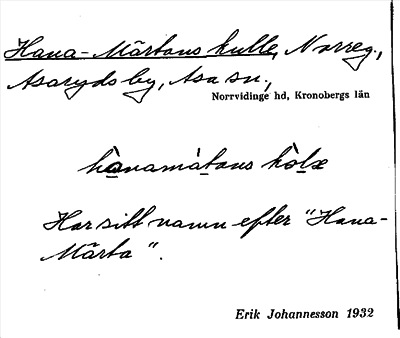 Hana-Märtans kulle, Norreg.,
Asaryds by, Asa sn.,
Norrvidinge hd, Kronobergs län
hànamàtans kòlæ
Har sitt namn efter "Hana-
Märta".
Erik Johannesson 1932